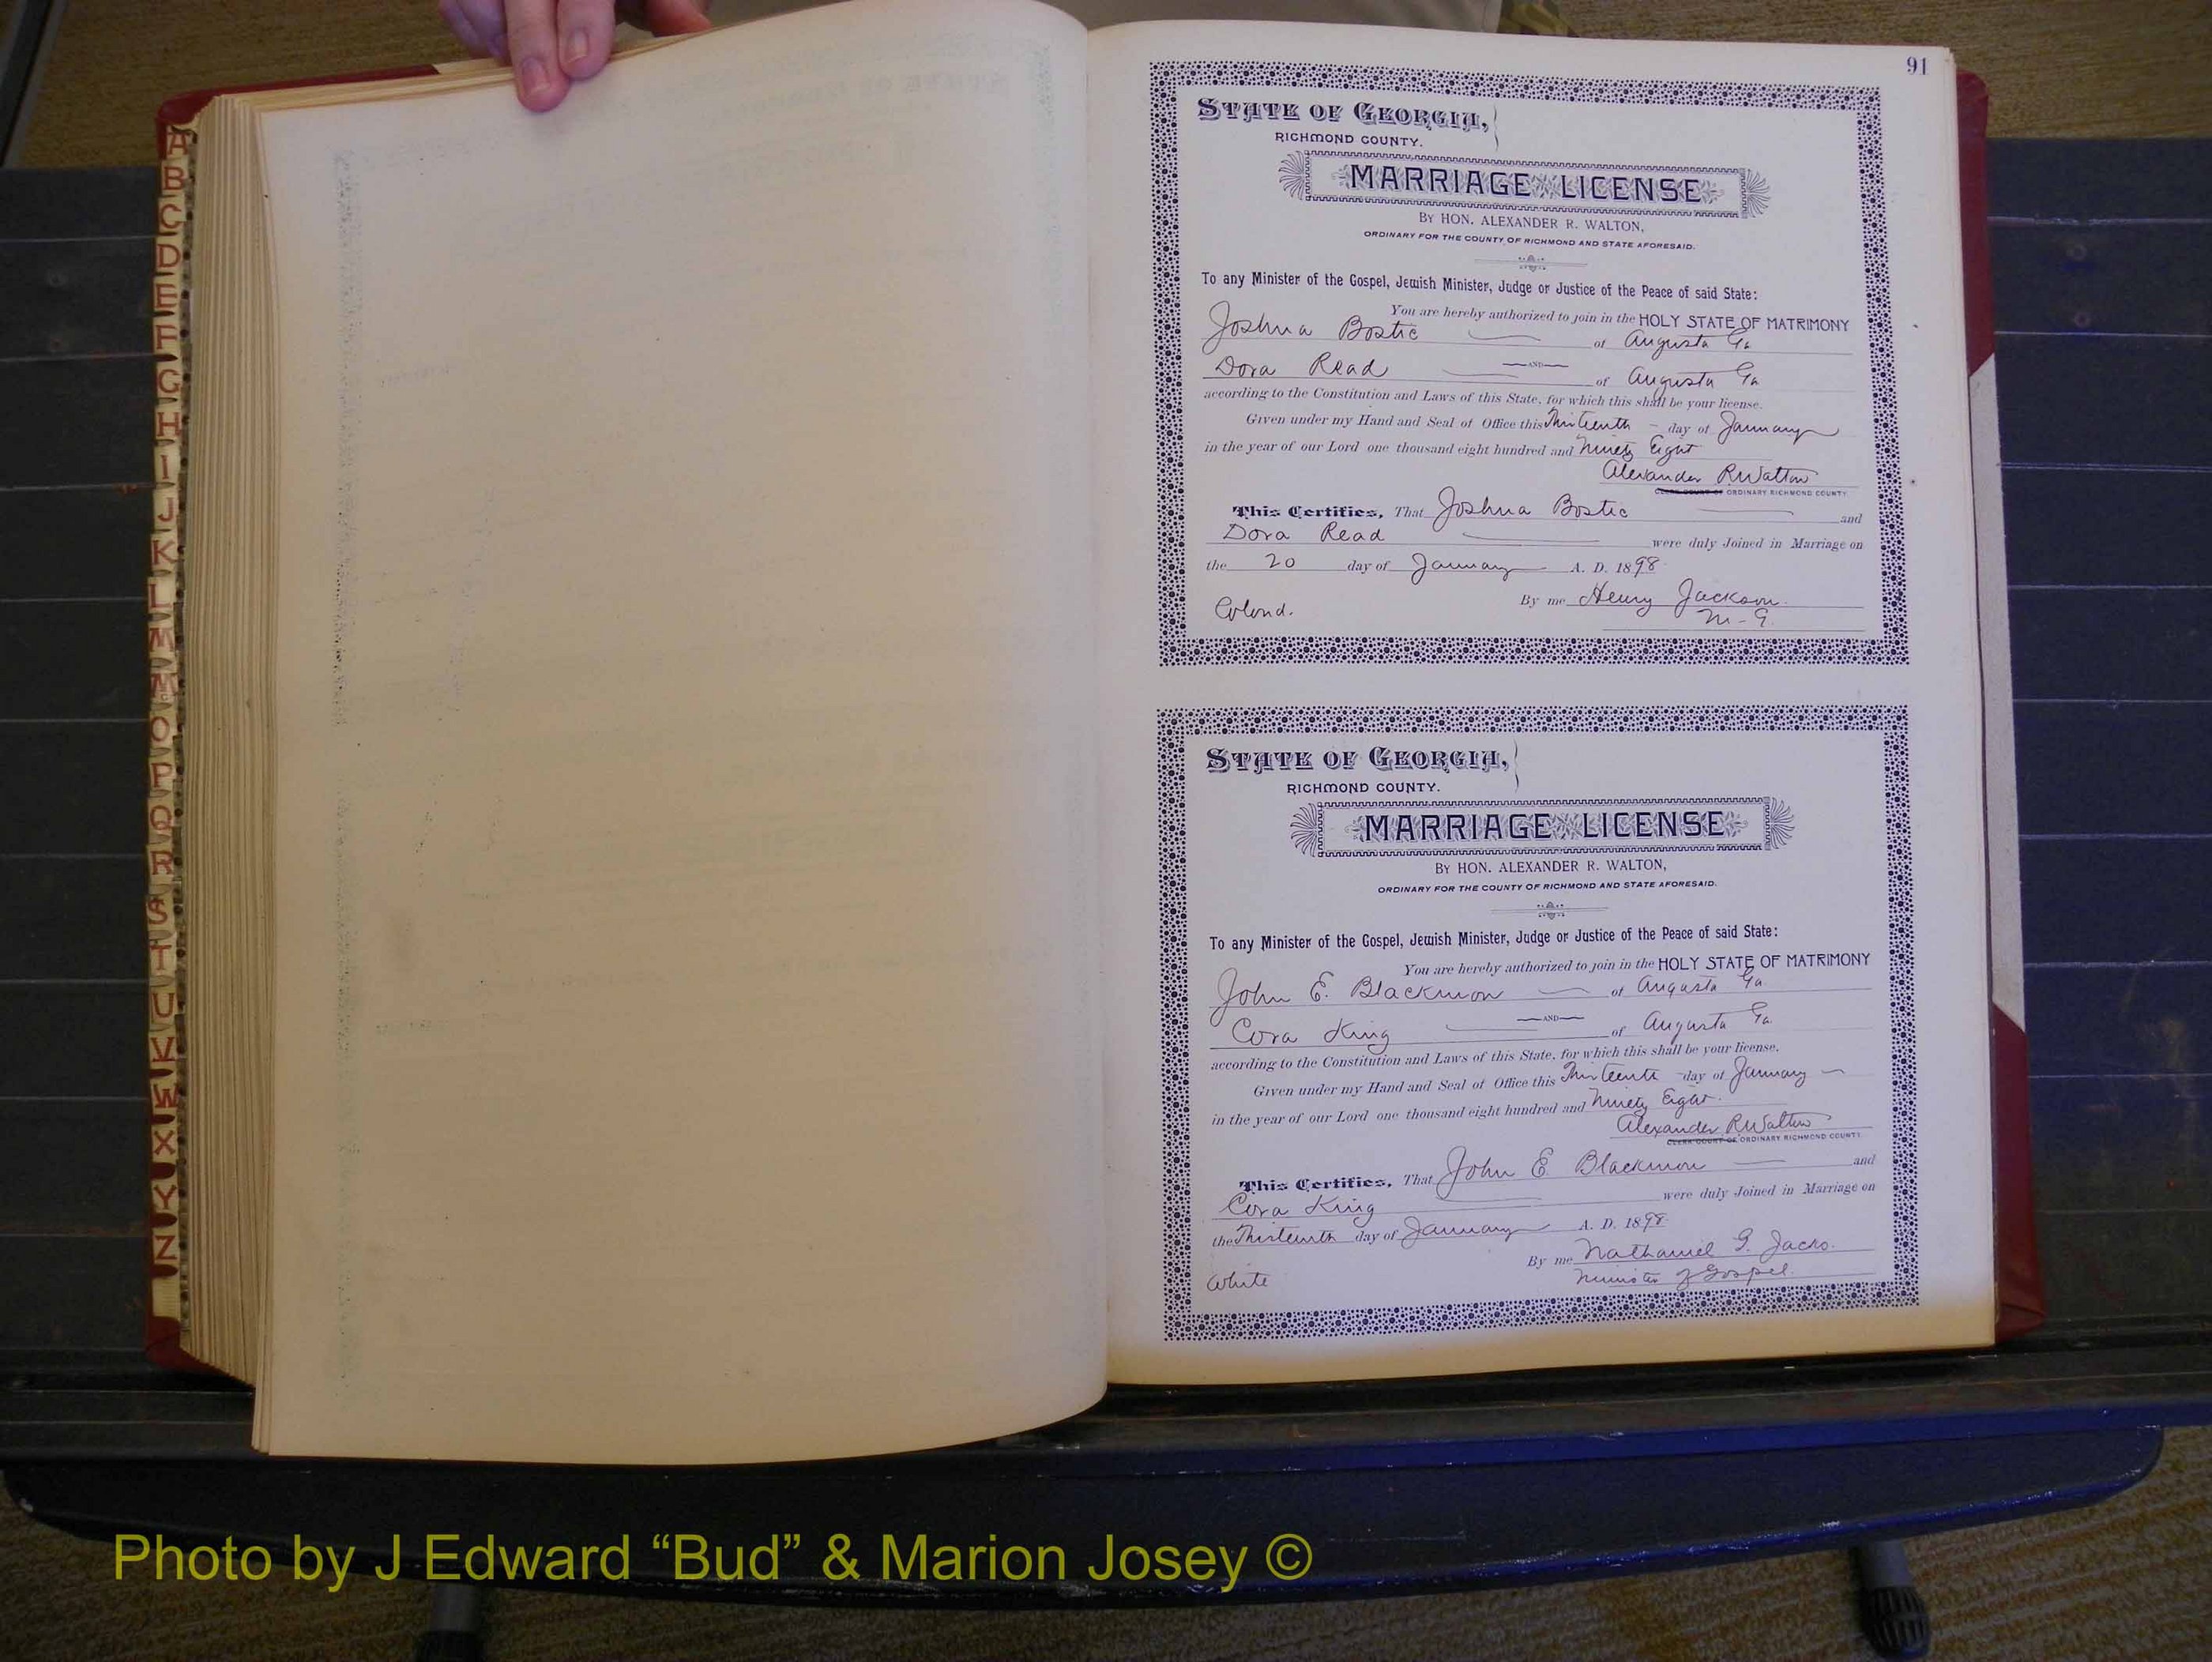 A
B
C
D
E
F
G
H
I
J
K
L
M
Mc
O
P
Q
R
S
T
U
V
W
X
Y
Z
91
STATE OF GEORGIA,
RICHMOND COUNTY.
MARRIAGE LICENSE
BY HON. ALEXANDER R. WALTON,
ORDINARY FOR THE COUNTY OF RICHMOND AND STATE AFORESAID.
To any Minister of the Gospel, Jewish Minister, Judge or Justice of the Peace of said State:
You are hereby authorized to join in the HOLY STATE OF MATRIMONY
Joshua Bostic of Augusta Ga
AND
Dora Read of Augusta Ga
according to the Constitution and Laws of this State, for which this shall be your license.
Given under my Hand and Seal of Office this Thirteenth - day of January
in the year of our Lord one thousand eight hundred and Ninety Eight
Alexander R Walton
CLERK COURT OF ORDINARY RICHMOND COUNTY
This Certifies, That Joshua Bostic and
Dora Read were duly Joined in Marriage on
the 20 day of January A. D. 1898
By me Henry Jackson.
Colord. M-G.
STATE OF GEORGIA,
RICHMOND COUNTY.
MARRIAGE LICENSE
BY HON. ALEXANDER R. WALTON,
ORDINARY FOR THE COUNTY OF RICHMOND AND STATE AFORESAID.
To any Minister of the Gospel, Jewish Minister, Judge or Justice of the Peace of said State:
You are hereby authorized to join in the HOLY STATE OF MATRIMONY
John E. Blackmon of Augusta Ga
AND
Cora King of Augusta Ga
according to the Constitution and Laws of this State, for which this shall be your license.
Given under my Hand and Seal of Office this Thirteenth day of January
in the year of our Lord one thousand eight hundred and Ninety Eight.
Alexander R Walton
CLERK COURT OF ORDINARY RICHMOND COUNTY
This Certifies, That John E Blackmon and
Cora King were duly Joined in Marriage on
the Thirteenth day of January A. D. 1898
By me Nathaniel G. Jacks.
White Minister of Gospel.
Photo by J Edward “Bud” & Marion Josey ©